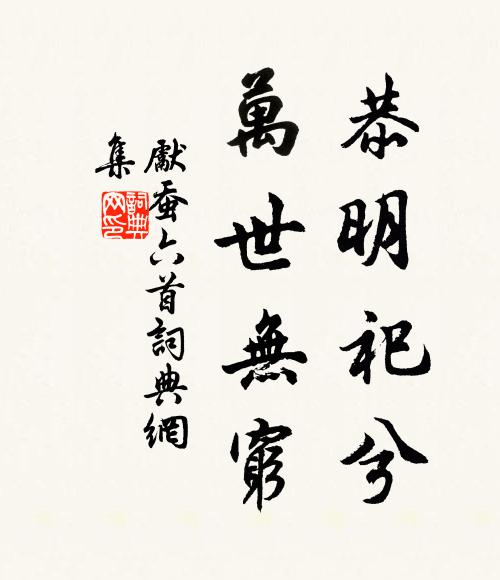 恭明祀兮
萬世無窮
獻蚕六首詞典網
集
詞典
网印